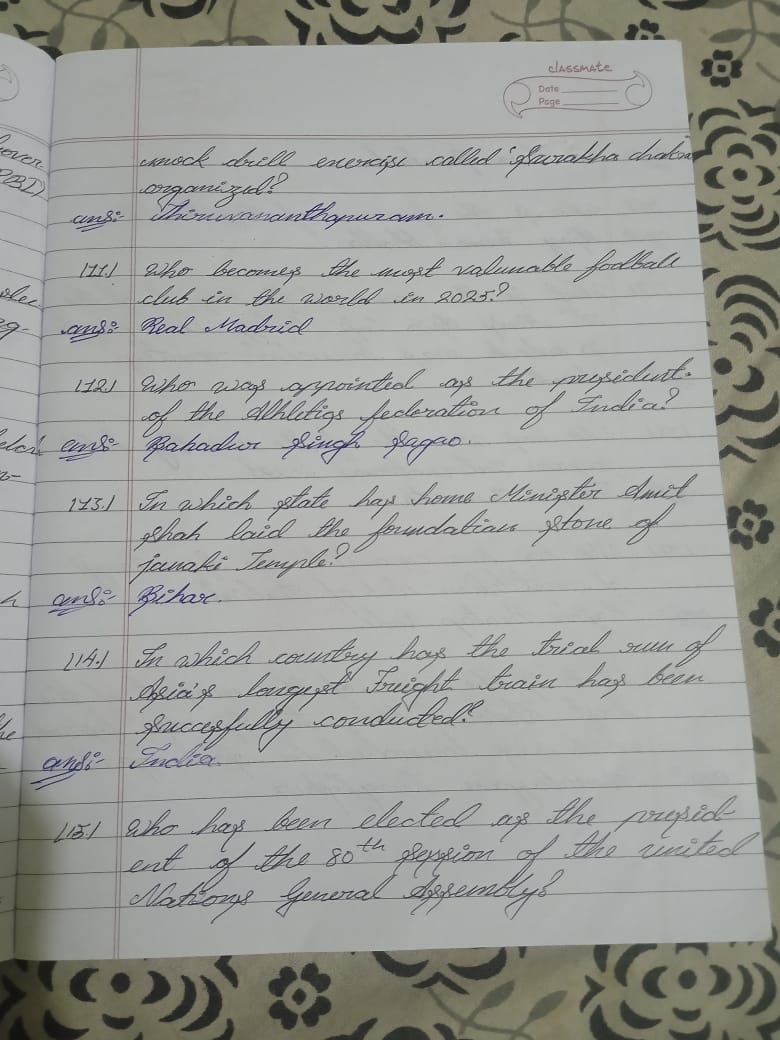 classmate
Date
Page
mock drill exercise called 'Surakha chakra
organized?
ans:- Thiruvananthapuram.
111.) Who becomes the most valunable football
club in the world in 2025?
ans:- Real Madrid
112.) Who was appointed as the president
of the Athletics federation of India?
ans:- Bahadur Singh Sagoo.
113.) In which state has home Minister Amit
Shah laid the foundation stone of
Janaki Temple?
ans:- Bihar.
114.) In which country has the trial run of
Asia's longest Freight train has been
succesfully conducted?
ans:- India.
115.) Who has been elected as the presid-
ent of the 80th session of the united
Nations General Assembly?